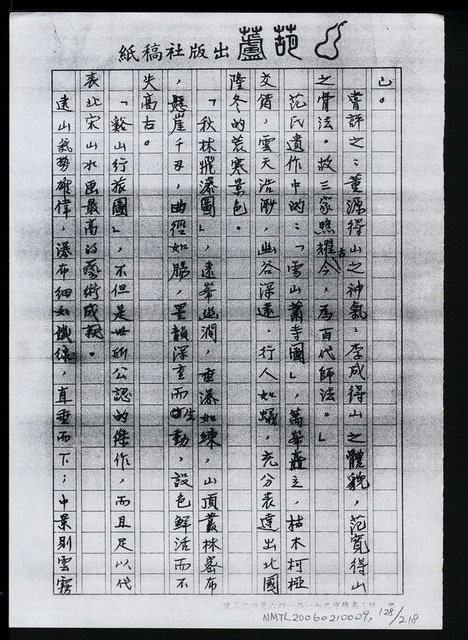 葫蘆出版社稿紙
已。
嘗評之：董源得山之神氣，李成得山之體貌，范寬得山
之骨法。故三家照耀古今，為百代師法。」
范氏遺作中的：「雪山蕭寺圖」，萬峯矗立，枯木柯椏
交錯，雲天浩渺，幽谷深遠，行人如蟻，充分表達出北國
隆冬的荒寒景色。
「秋林飛瀑圖」，遠峯幽澗，垂瀑如練，山頂叢林密布
，懸崖千刃，曲徑如腸，墨韻深重而生動，設色鮮活而不
失高古。
「谿山行旅圖」，不但是世所公認的傑作，而且足以代
表北宋山水畫最高的藝術成就。
遠山氣勢雄偉，瀑布細如織線，直垂而下；中景則雲霧
NMTL20060210009, 128/218